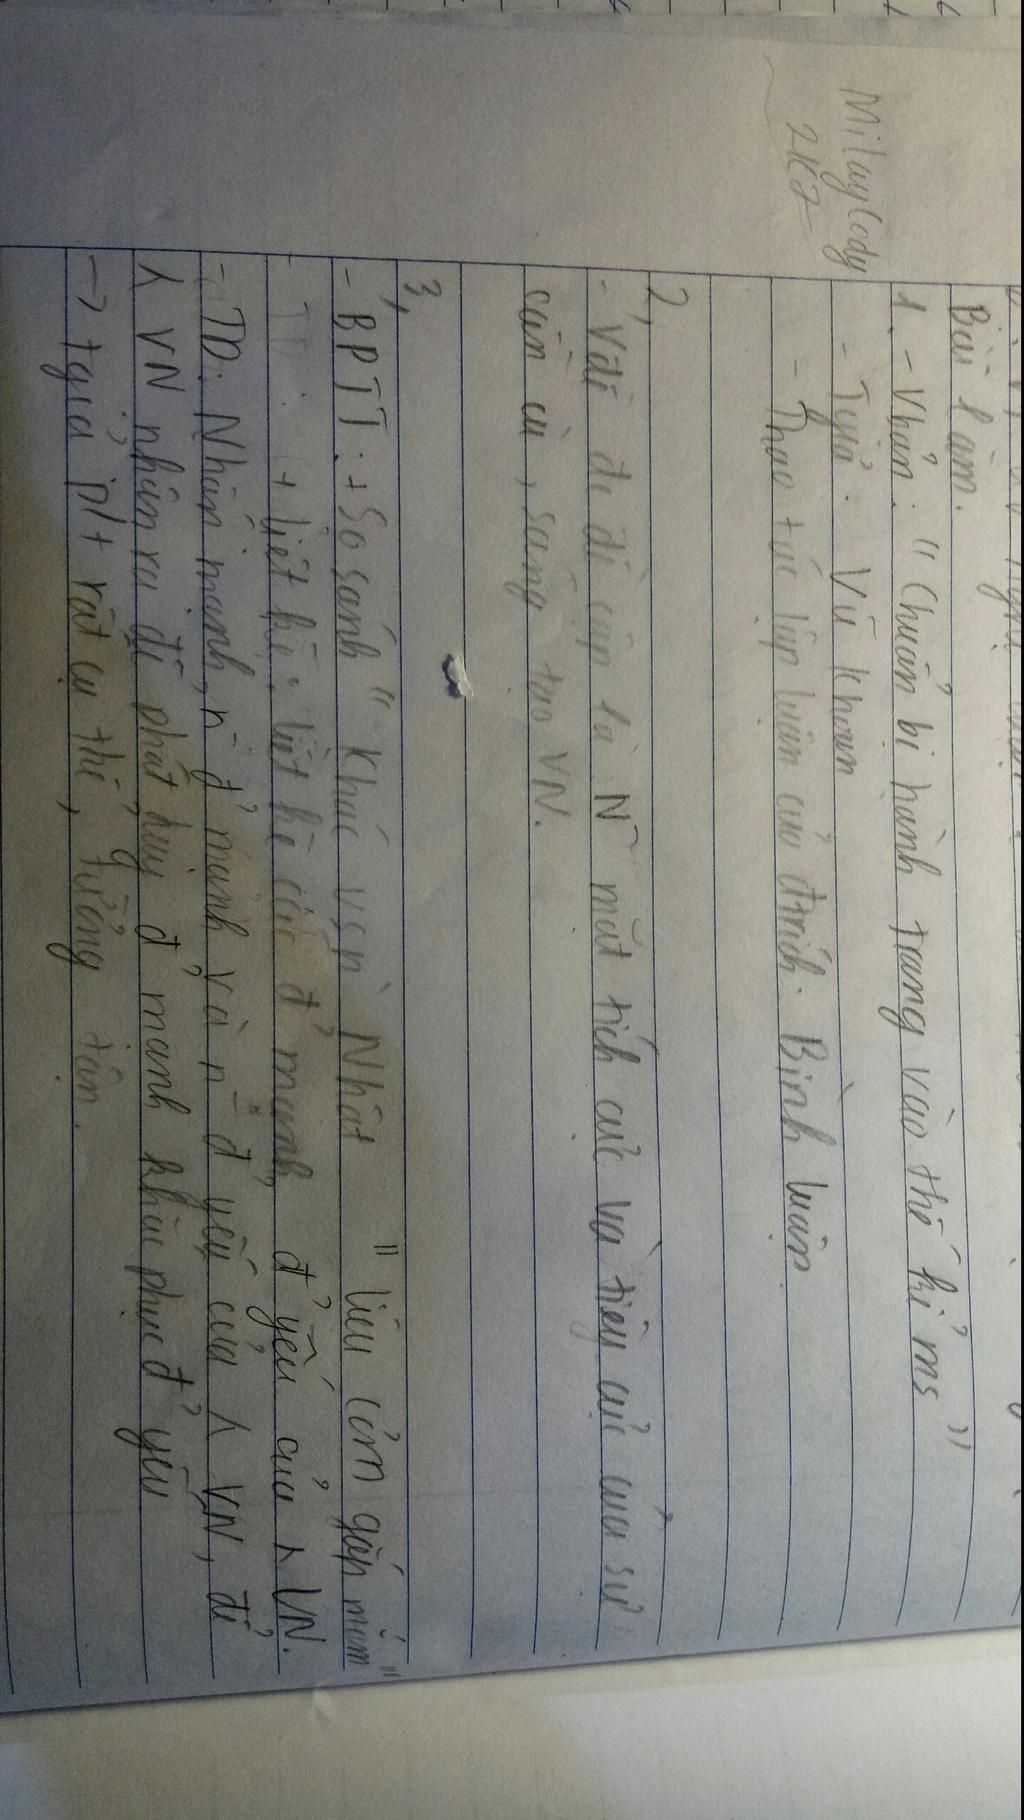 MiluyCody
2K7
Bài làm.
1. - Vbản: "Chuẩn bị hành trang vào thế kỉ ms"
- Tgiả: Vũ Khoan
- Thao tác lập luận của đtrích: Bình luận
2,
- Vđề đc đề cập là N~ mặt tích cực và tiêu cực của sự
cần cù, sáng tạo VN.
3,
- BPTT: + So sánh "khác vs n` Nhật " liệu cơm gắp mắm"
+ liệt kê: liệt kê các đ' mạnh, đ' yếu của λ VN.
- TD: Nhấn mạnh, n~ đ' mạnh và n~ đ yếu của λ VN, để
λ VN nhận ra để phát huy đ' mạnh khắc phục đ' yếu
-> tgiả pt rất cụ thể, tường tận.